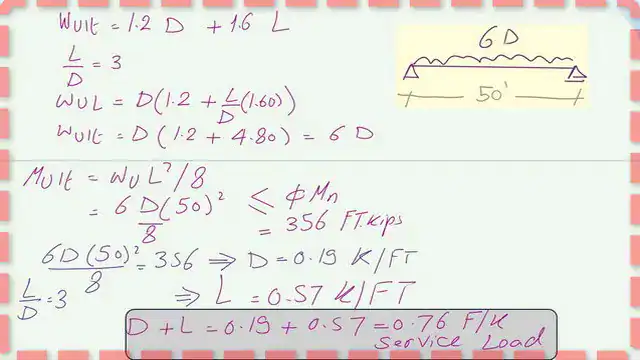 Wult = 1.2 D + 1.6 L
L/D = 3
WUL = D(1.2 + L/D (1.60))
Wult = D (1.2 + 4.80) = 6 D
6 D
50'
Mult = WuL²/8
= 6 D(50)²/8 ≤ ΦMn
= 356 FT.kips
6D(50)²/8 = 356 ⇒ D = 0.19 K/FT
L/D = 3 ⇒ L = 0.57 K/FT
D + L = 0.19 + 0.57 = 0.76 F/K
Service Load